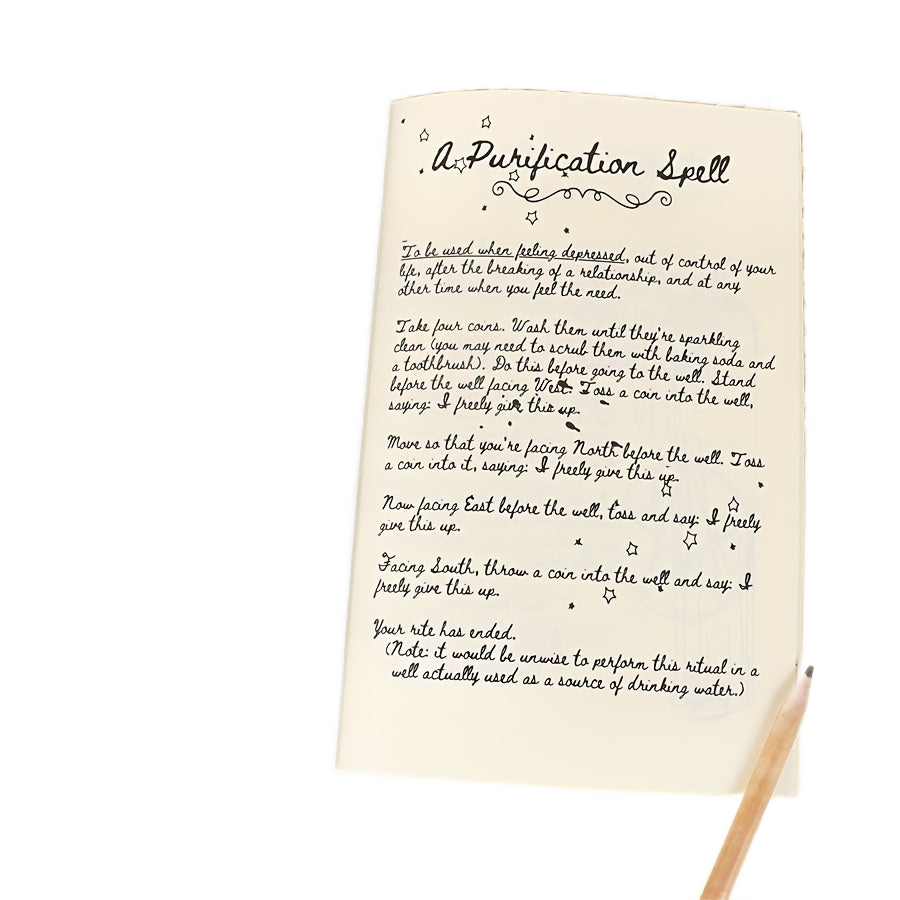 A Purification Spell
To be used when feeling depressed, out of control of your
life, after the breaking of a relationship, and at any
other time when you feel the need.
Take four coins. Wash them until they're sparkling
clean (you may need to scrub them with baking soda and
a toothbrush). Do this before going to the well. Stand
before the well facing West. Toss a coin into the well,
saying: I freely give this up.
Move so that you're facing North before the well. Toss
a coin into it, saying: I freely give this up.
Now facing East before the well, toss and say: I freely
give this up.
Facing South, throw a coin into the well and say: I
freely give this up.
Your rite has ended.
(Note: it would be unwise to perform this ritual in a
well actually used as a source of drinking water.)